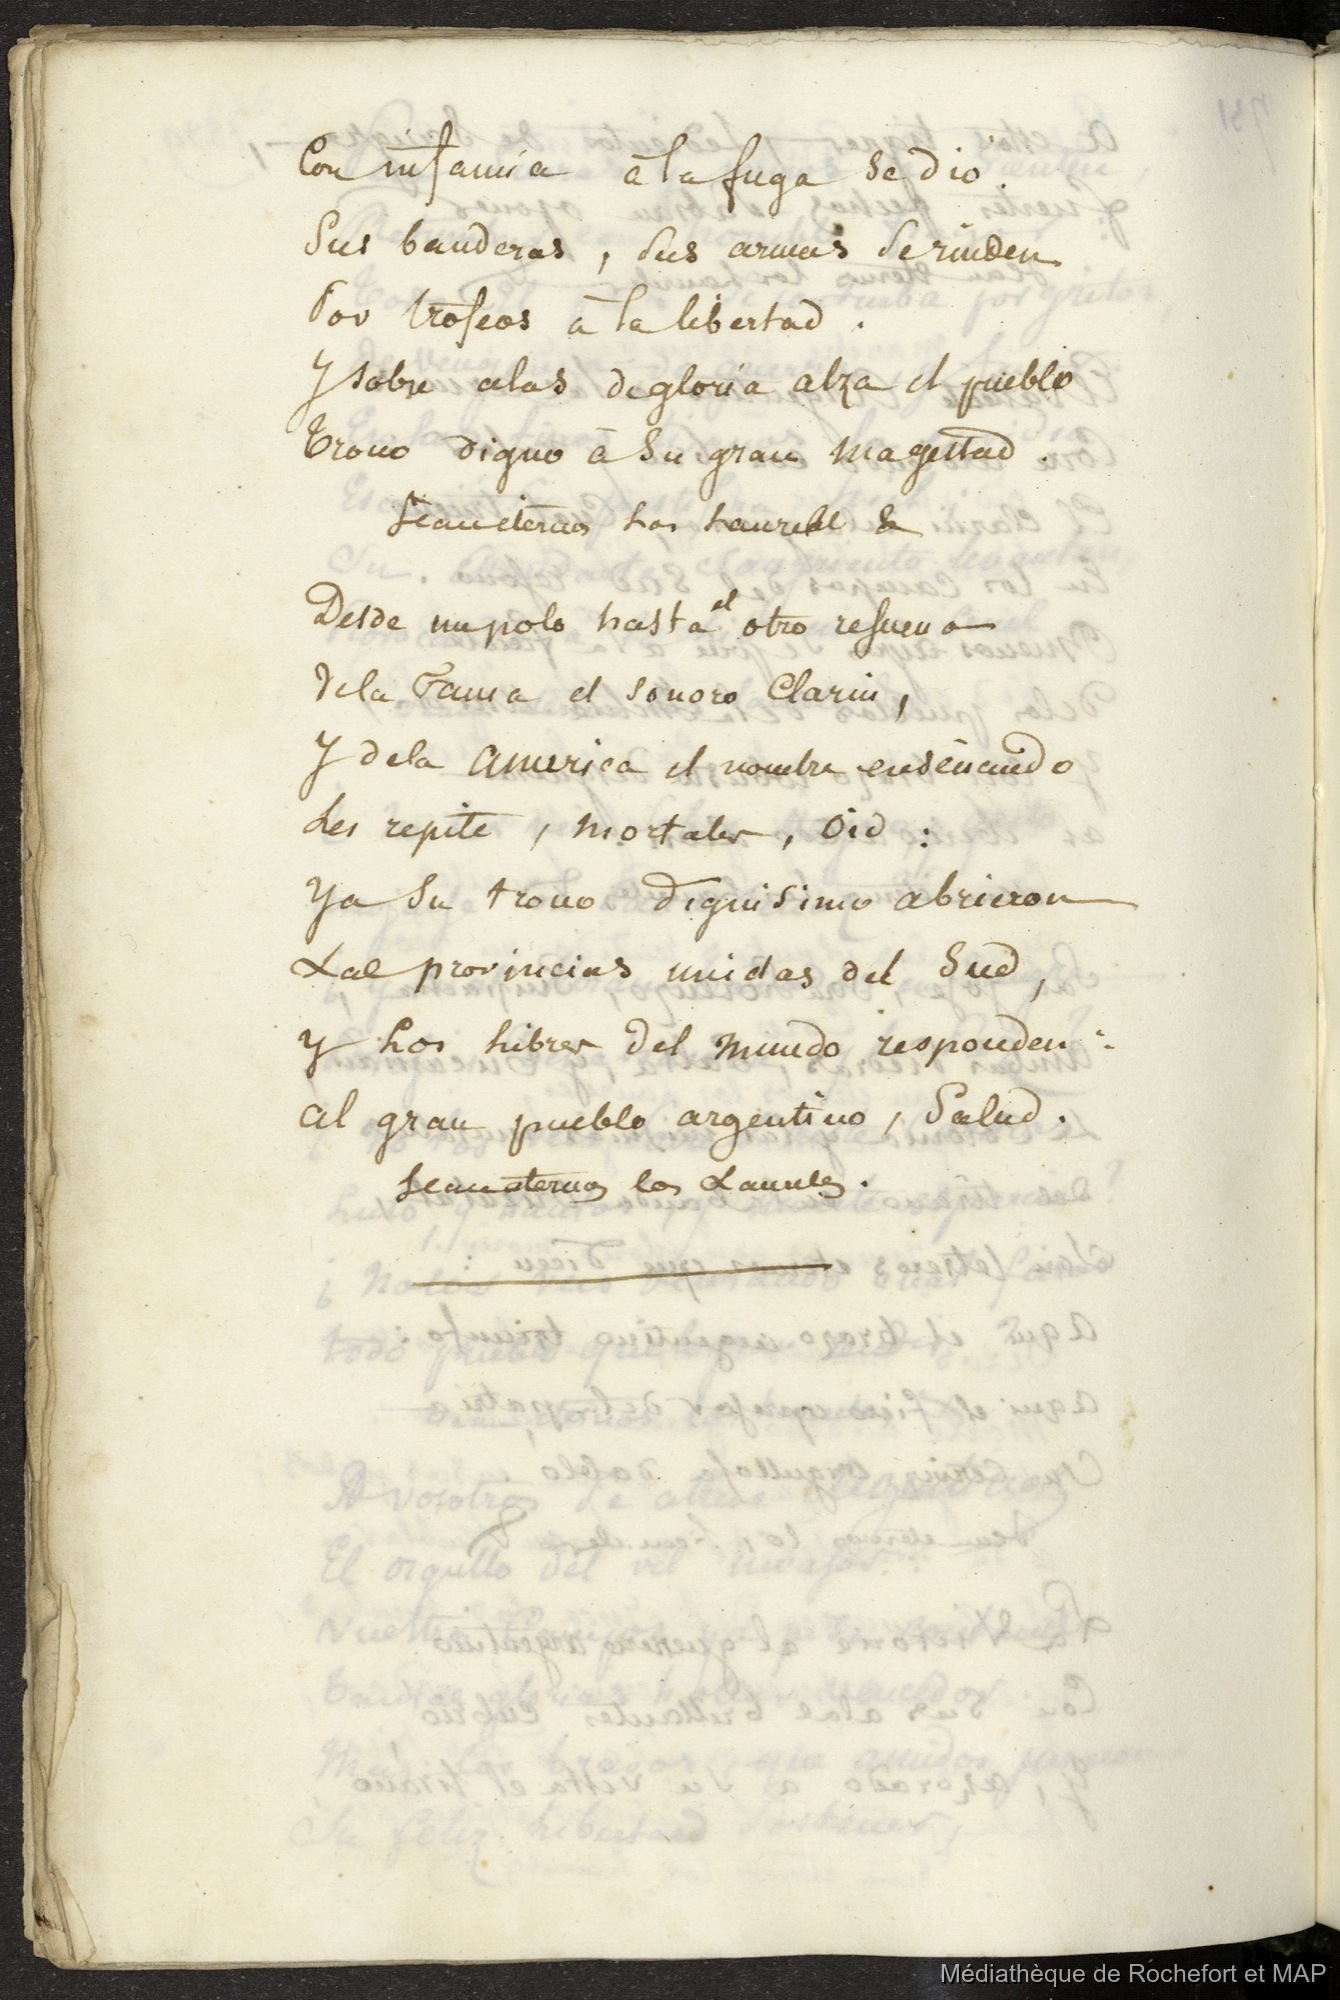 Con infamia à la fuga se dió.
Sus banderas, sus armas se rinden
Por trofeos à la libertad.
Y sobre alas de gloria alza el pueblo
Trono digno à Su gran Magestad.
Sean eternos Los Laureles &
Desde un polo hasta el otro resuena
de la Fama el sonoro Clarin,
Y de la America el nombre enseñando
Les repite, Mortales, Oid:
Ya Su trono dignisimo abrieron
Las provincias unidas del Sud,
Y Los Libres del Mundo responden:
al gran pueblo argentino, Salud.
Sean eternos los Laureles.
Médiathèque de Rochefort et MAP